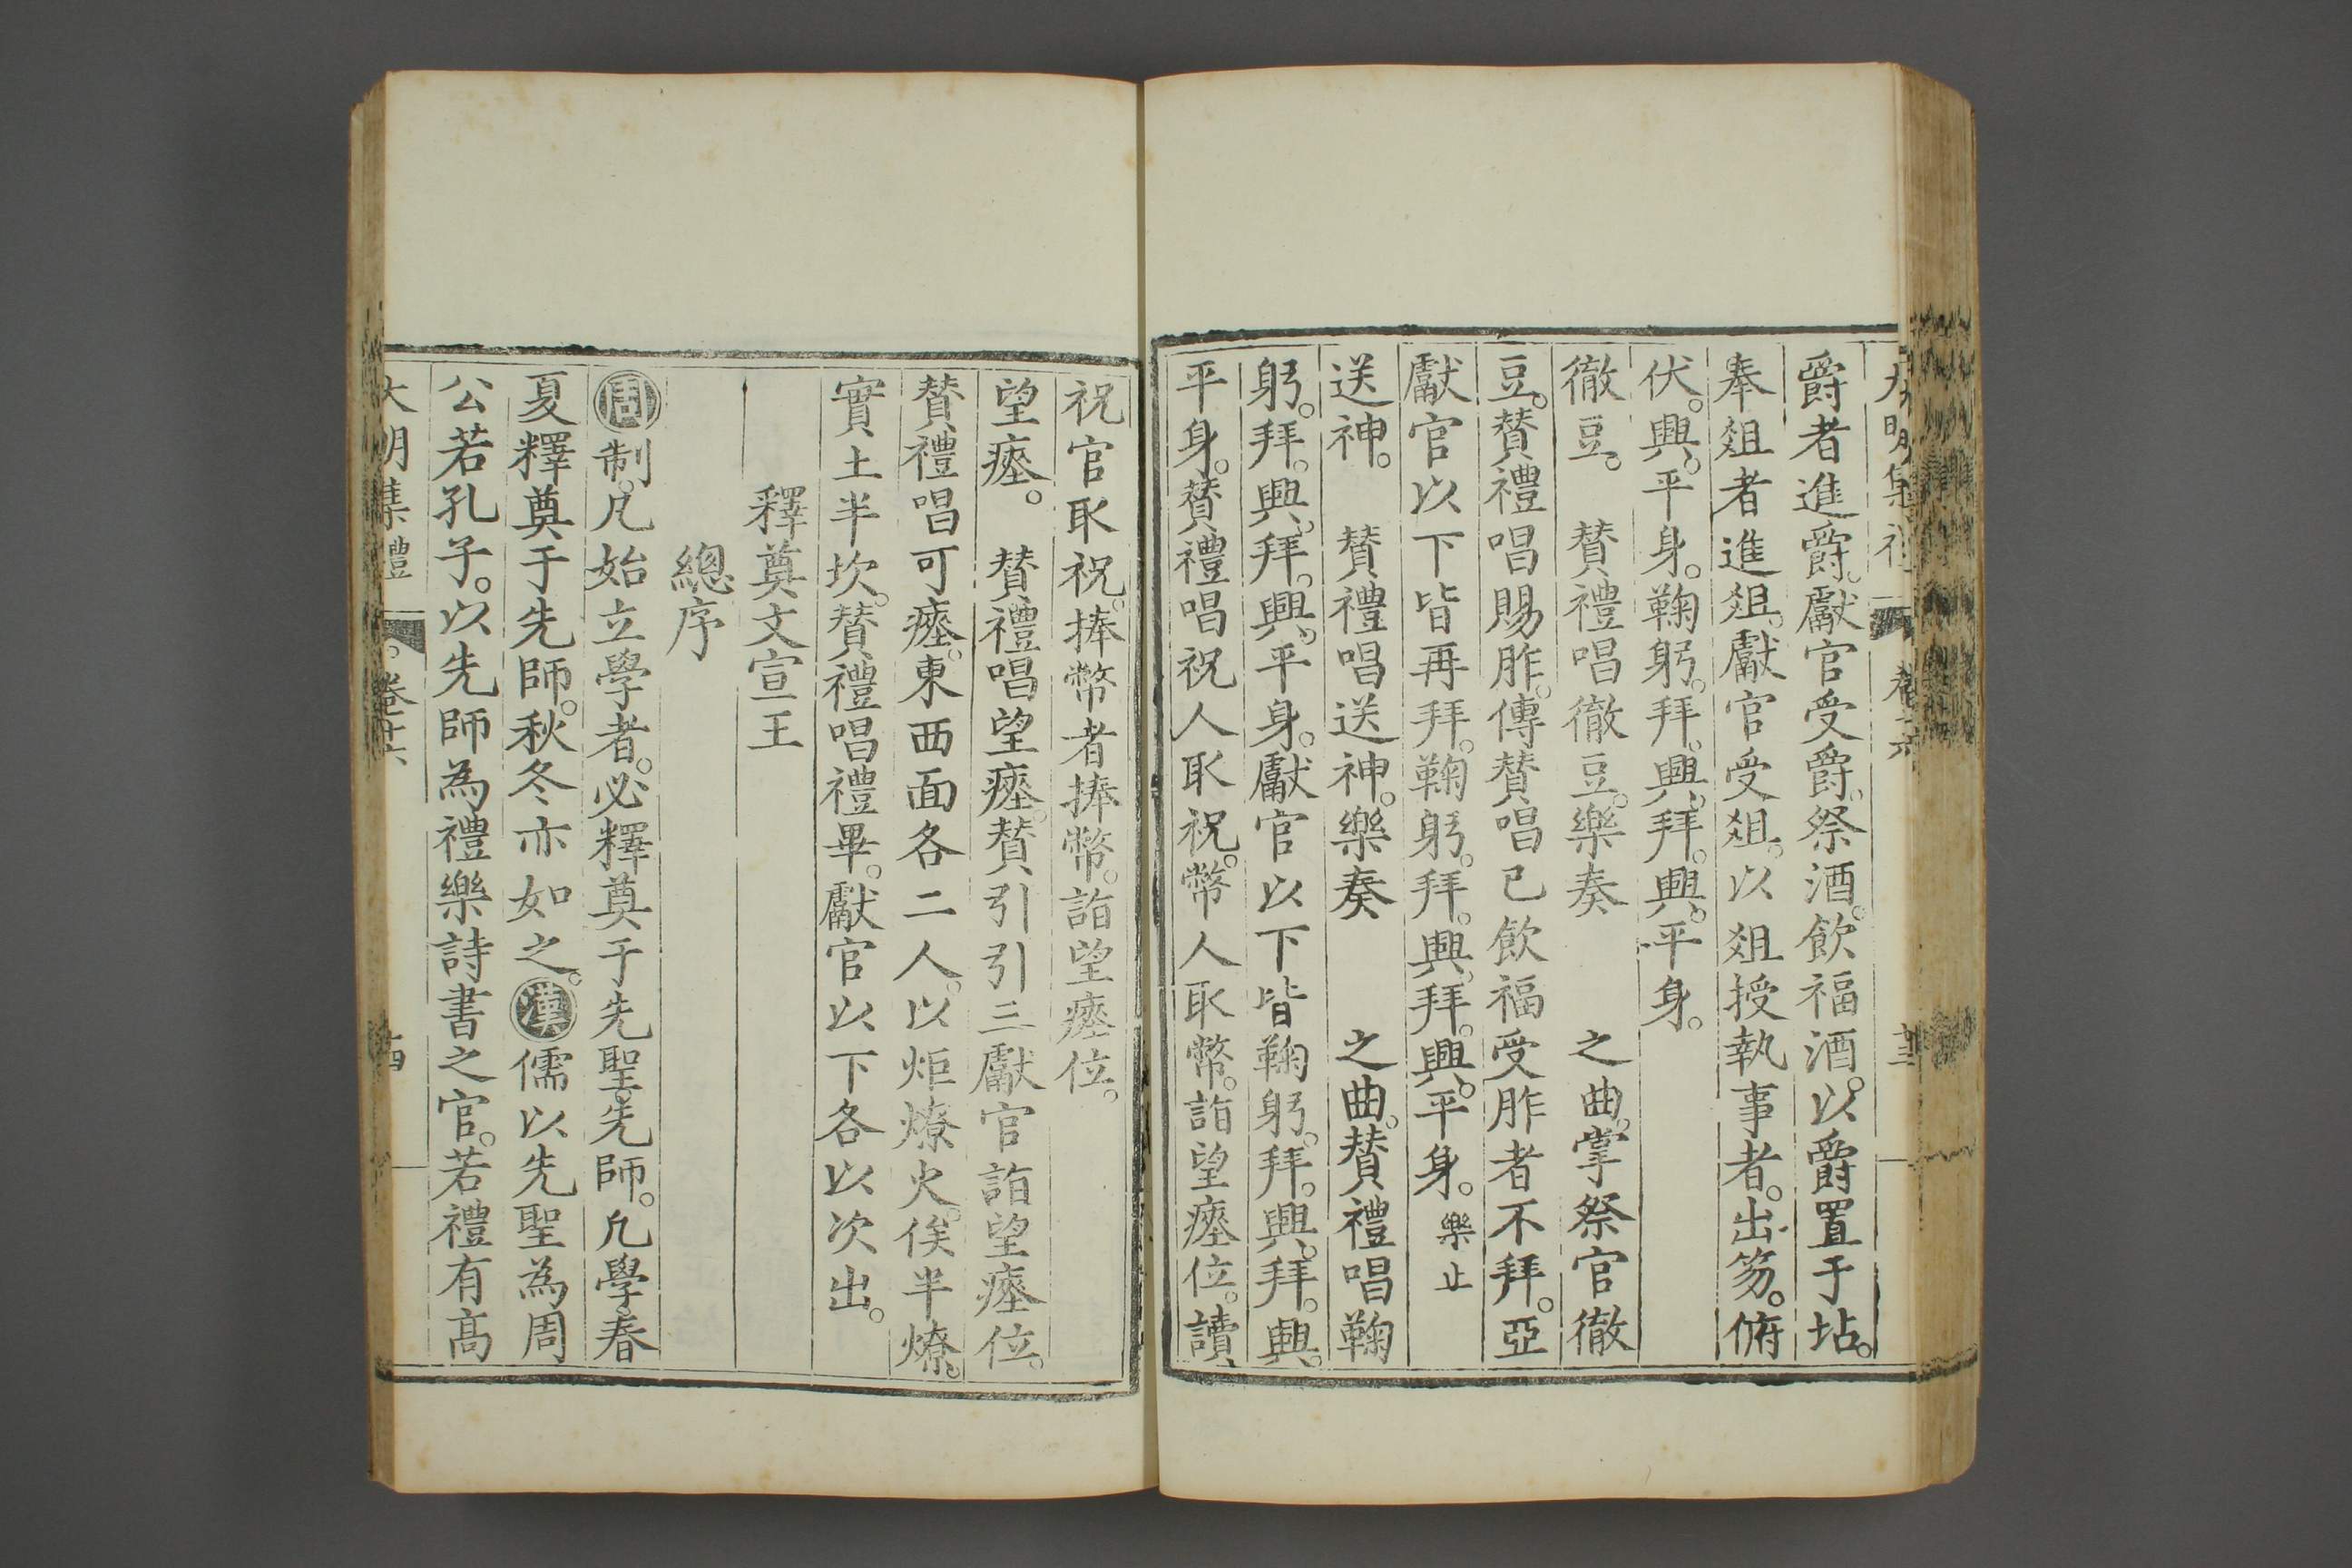 大明集禮 卷十六 十三
爵者進爵。獻官受爵。祭酒。飲福酒。以爵置于坫。
奉俎者進俎。獻官受俎。以俎授執事者。出笏。俯
伏。興。平身。鞠躬。拜。興。拜。興。平身。
徹豆。 贊禮唱徹豆。樂奏 之曲。掌祭官徹
豆。贊禮唱賜胙。傳贊唱已飲福受胙者不拜。亞
獻官以下皆再拜。鞠躬。拜。興。拜。興。平身。樂止
送神。 贊禮唱送神。樂奏 之曲。贊禮唱鞠
躬。拜。興。拜。興。平身。獻官以下皆鞠躬。拜。興。拜。興。
平身。贊禮唱祝人取祝。幣人取幣。詣望瘞位。讀
祝官取祝。捧幣者捧幣。詣望瘞位。
望瘞。 贊禮唱望瘞。贊引引三獻官詣望瘞位。
贊禮唱可瘞。東西面各二人。以炬燎火。俟半燎。
實土半坎。贊禮唱禮畢。獻官以下各以次出。
釋奠文宣王
總序
周制。凡始立學者。必釋奠于先聖先師。凡學春
夏釋奠于先師。秋冬亦如之。漢儒以先聖為周
公若孔子。以先師為禮樂詩書之官。若禮有高
大明集禮 卷十六 十四